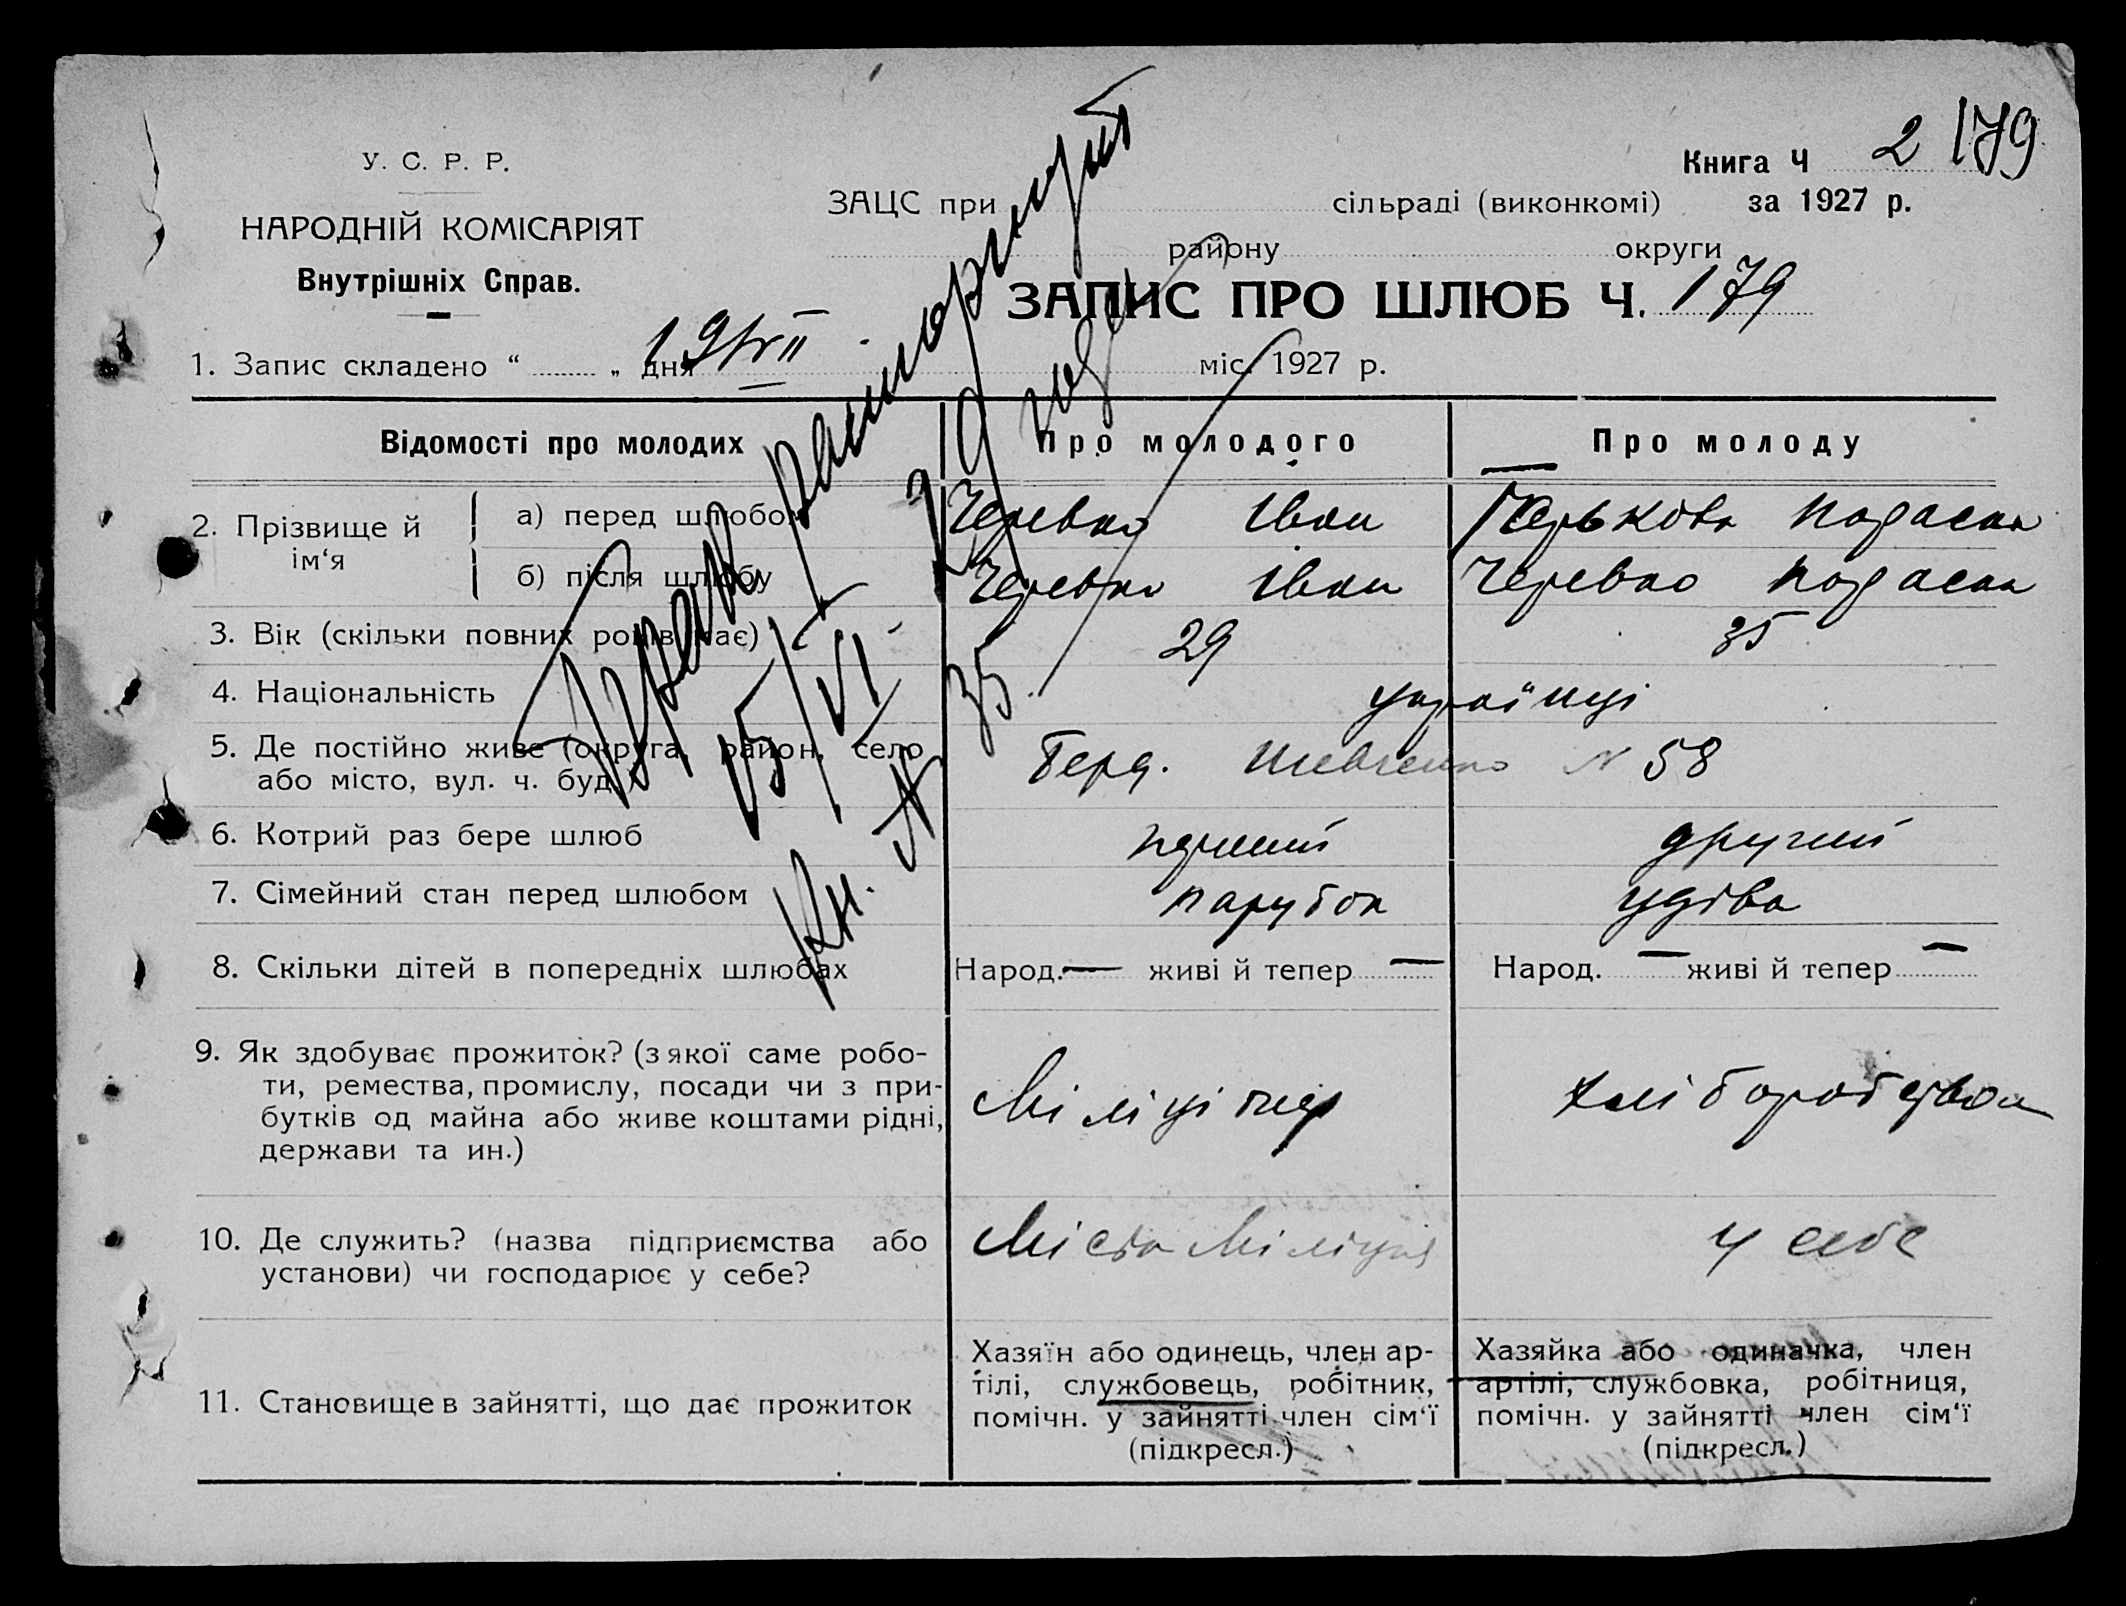 У. С. Р. Р.
НАРОДНІЙ КОМІСАРІЯТ
Внутрішніх Справ.
Книга Ч 2 179
за 1927 р.
ЗАЦС при сільраді (виконкомі)
району округи
ЗАПИС ПРО ШЛЮБ Ч. 179
1. Запис складено “ „ дня 19/VII міс. 1927 р.
Брак расторгнут
15/VI 29 года
Кн. № 35
Відомості про молодих Про молодого Про молоду
2. Прізвище й ім‘я
а) перед шлюбом Черевко Іван Параска
б) після шлюбу Черевко Іван Черевко Параска
3. Вік (скільки повних років має) 29 35
4. Національність українці
5. Де постійно живе (округа, район, село
або місто, вул. ч. буд.) Берд. Шевченко № 58
6. Котрий раз бере шлюб перший другий
7. Сімейний стан перед шлюбом парубок удова
8. Скільки дітей в попередніх шлюбах Народ. — живі й тепер — Народ. — живі й тепер —
9. Як здобуває прожиток? (з якої саме робо-
ти, ремества, промислу, посади чи з при-
бутків од майна або живе коштами рідні,
держави та ин.)
Міліціонер хліборобство
10. Де служить? (назва підприємства або
установи) чи господарює у себе?
Міста Міліція у себе
11. Становище в зайнятті, що дає прожиток
Хазяїн або одинець, член ар-
тілі, службовець, робітник,
помічн. у зайнятті член сім‘ї
(підкресл.)
Хазяйка або одиначка, член
артілі, службовка, робітниця,
помічн. у зайнятті член сім‘ї
(підкресл.)